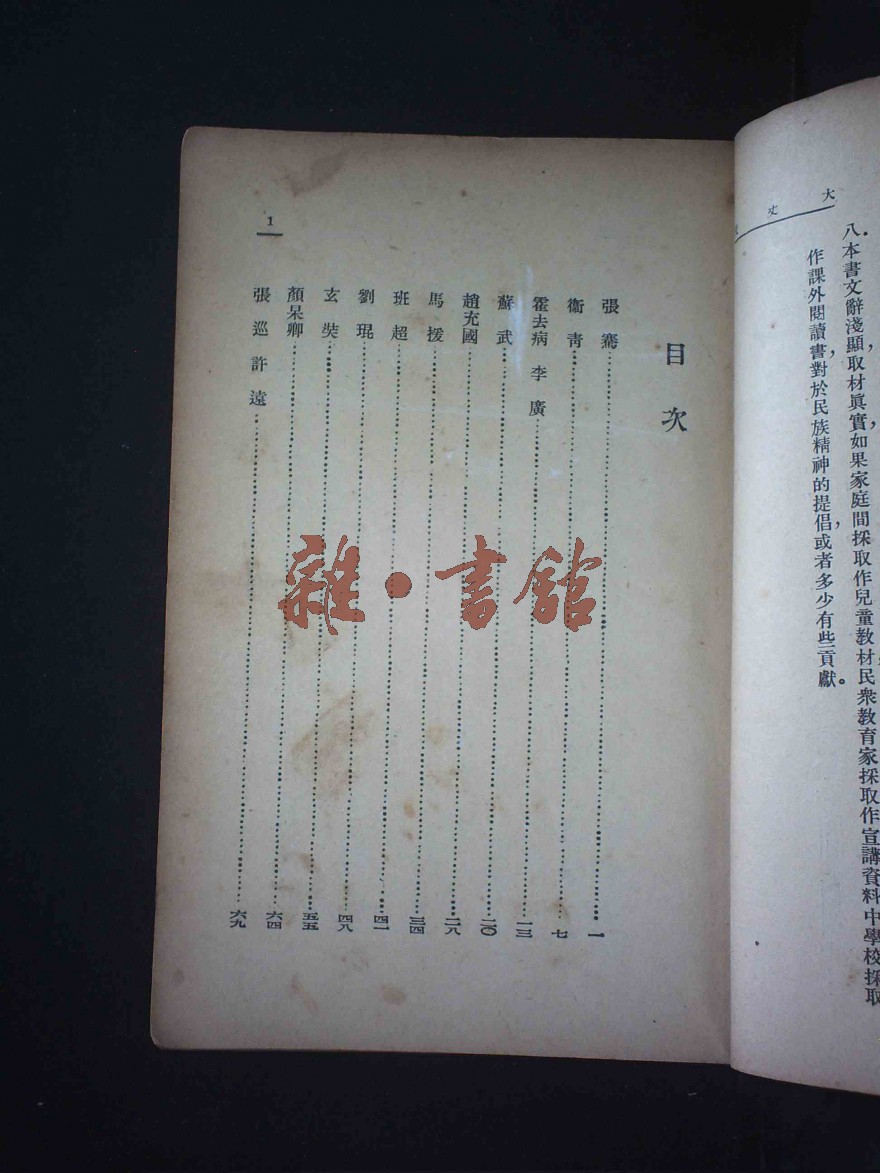 大丈
八．本書文辭淺顯，取材眞實，如果家庭間採取作兒童教材，民衆教育家採取作宣講資料，中學校採取
作課外閱讀書，對於民族精神的提倡，或者多少有些貢獻。
目次
張騫……一
衞青……七
霍去病 李廣……一三
蘇武……二〇
趙充國……二八
馬援……三四
班超……四一
劉琨……四八
玄奘……五五
顏杲卿……六四
張巡 許遠……六九
1
雜·書館